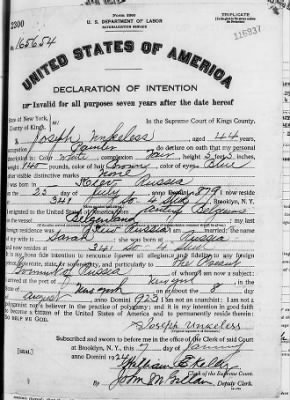 2300
Form 2202
U. S. DEPARTMENT OF LABOR
NATURALIZATION SERVICE
TRIPLICATE
No. 165654
116937
UNITED STATES OF AMERICA
DECLARATION OF INTENTION
Invalid for all purposes seven years after the date hereof
State of New York,
County of Kings,
In the Supreme Court of Kings County.
I, Joseph Unkeless aged 44 years,
occupation Painter do declare on oath that my personal
description is: Color White complexion Fair height 5 feet 3 inches,
weight 145 color of hair Brown color of eyes Blue
visible distinctive marks None
I was born in Kiev Russia
on the 25 day of July 1879; I now reside
at 341 So. 4 St. Brooklyn, N. Y.
I emigrated to the United States of America from Antwerp Belgium
on the vessel Belgenland my last
foreign residence was Kiev Russia I am married; the name
of my wife is Sarah she was born at Russia
and now resides at 341 So. 4 St.
It is my bona fide intention to renounce forever all allegiance and fidelity to any foreign
prince, potentate, state, or sovereignty, and particularly to The Present
Government of Russia of whom I am now a subject;
I arrived at the port of New York
New York on or about the 8 day
of August anno Domini 1923; I am not an anarchist; I am not a
polygamist nor a believer in the practice of polygamy; and it is my intention in good faith
to become a citizen of the United States of America and to permanently reside therein:
SO HELP ME GOD.
Joseph Unkeless
Subscribed and sworn to before me in the office of the Clerk of said Court
at Brooklyn, N. Y., this 7 day of January
anno Domini 1924
[SEAL]
William E. Kelly
Clerk of the Supreme Court.
By John M. Deputy Clerk.